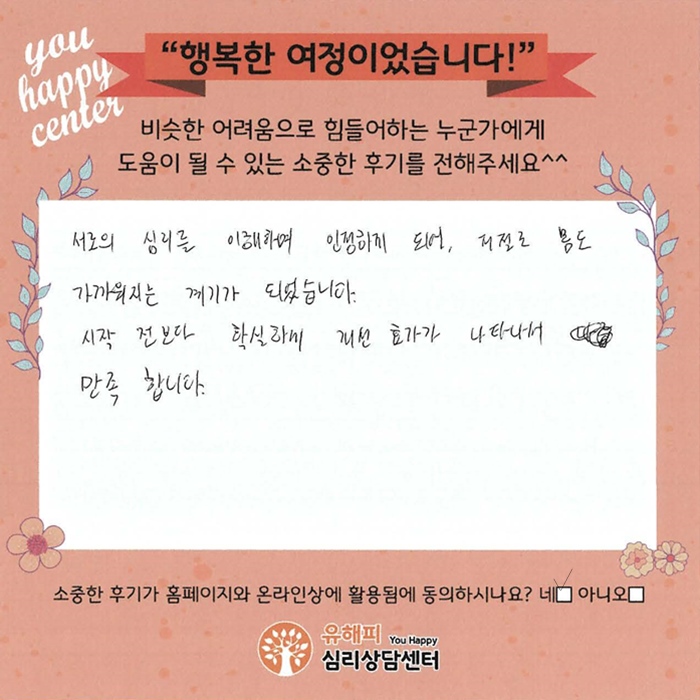 you
happy
center
“행복한 여정이었습니다!”
비슷한 어려움으로 힘들어하는 누군가에게
도움이 될 수 있는 소중한 후기를 전해주세요^^
서로의 심리를 이해하며 인정하게 되어, 저절로 몸도
가까워지는 계기가 되었습니다.
시작 전보다 확실하게 개선 효과가 나타나서
만족 합니다.
소중한 후기가 홈페이지와 온라인상에 활용됨에 동의하시나요? 네 아니오
유해피 You Happy
심리상담센터